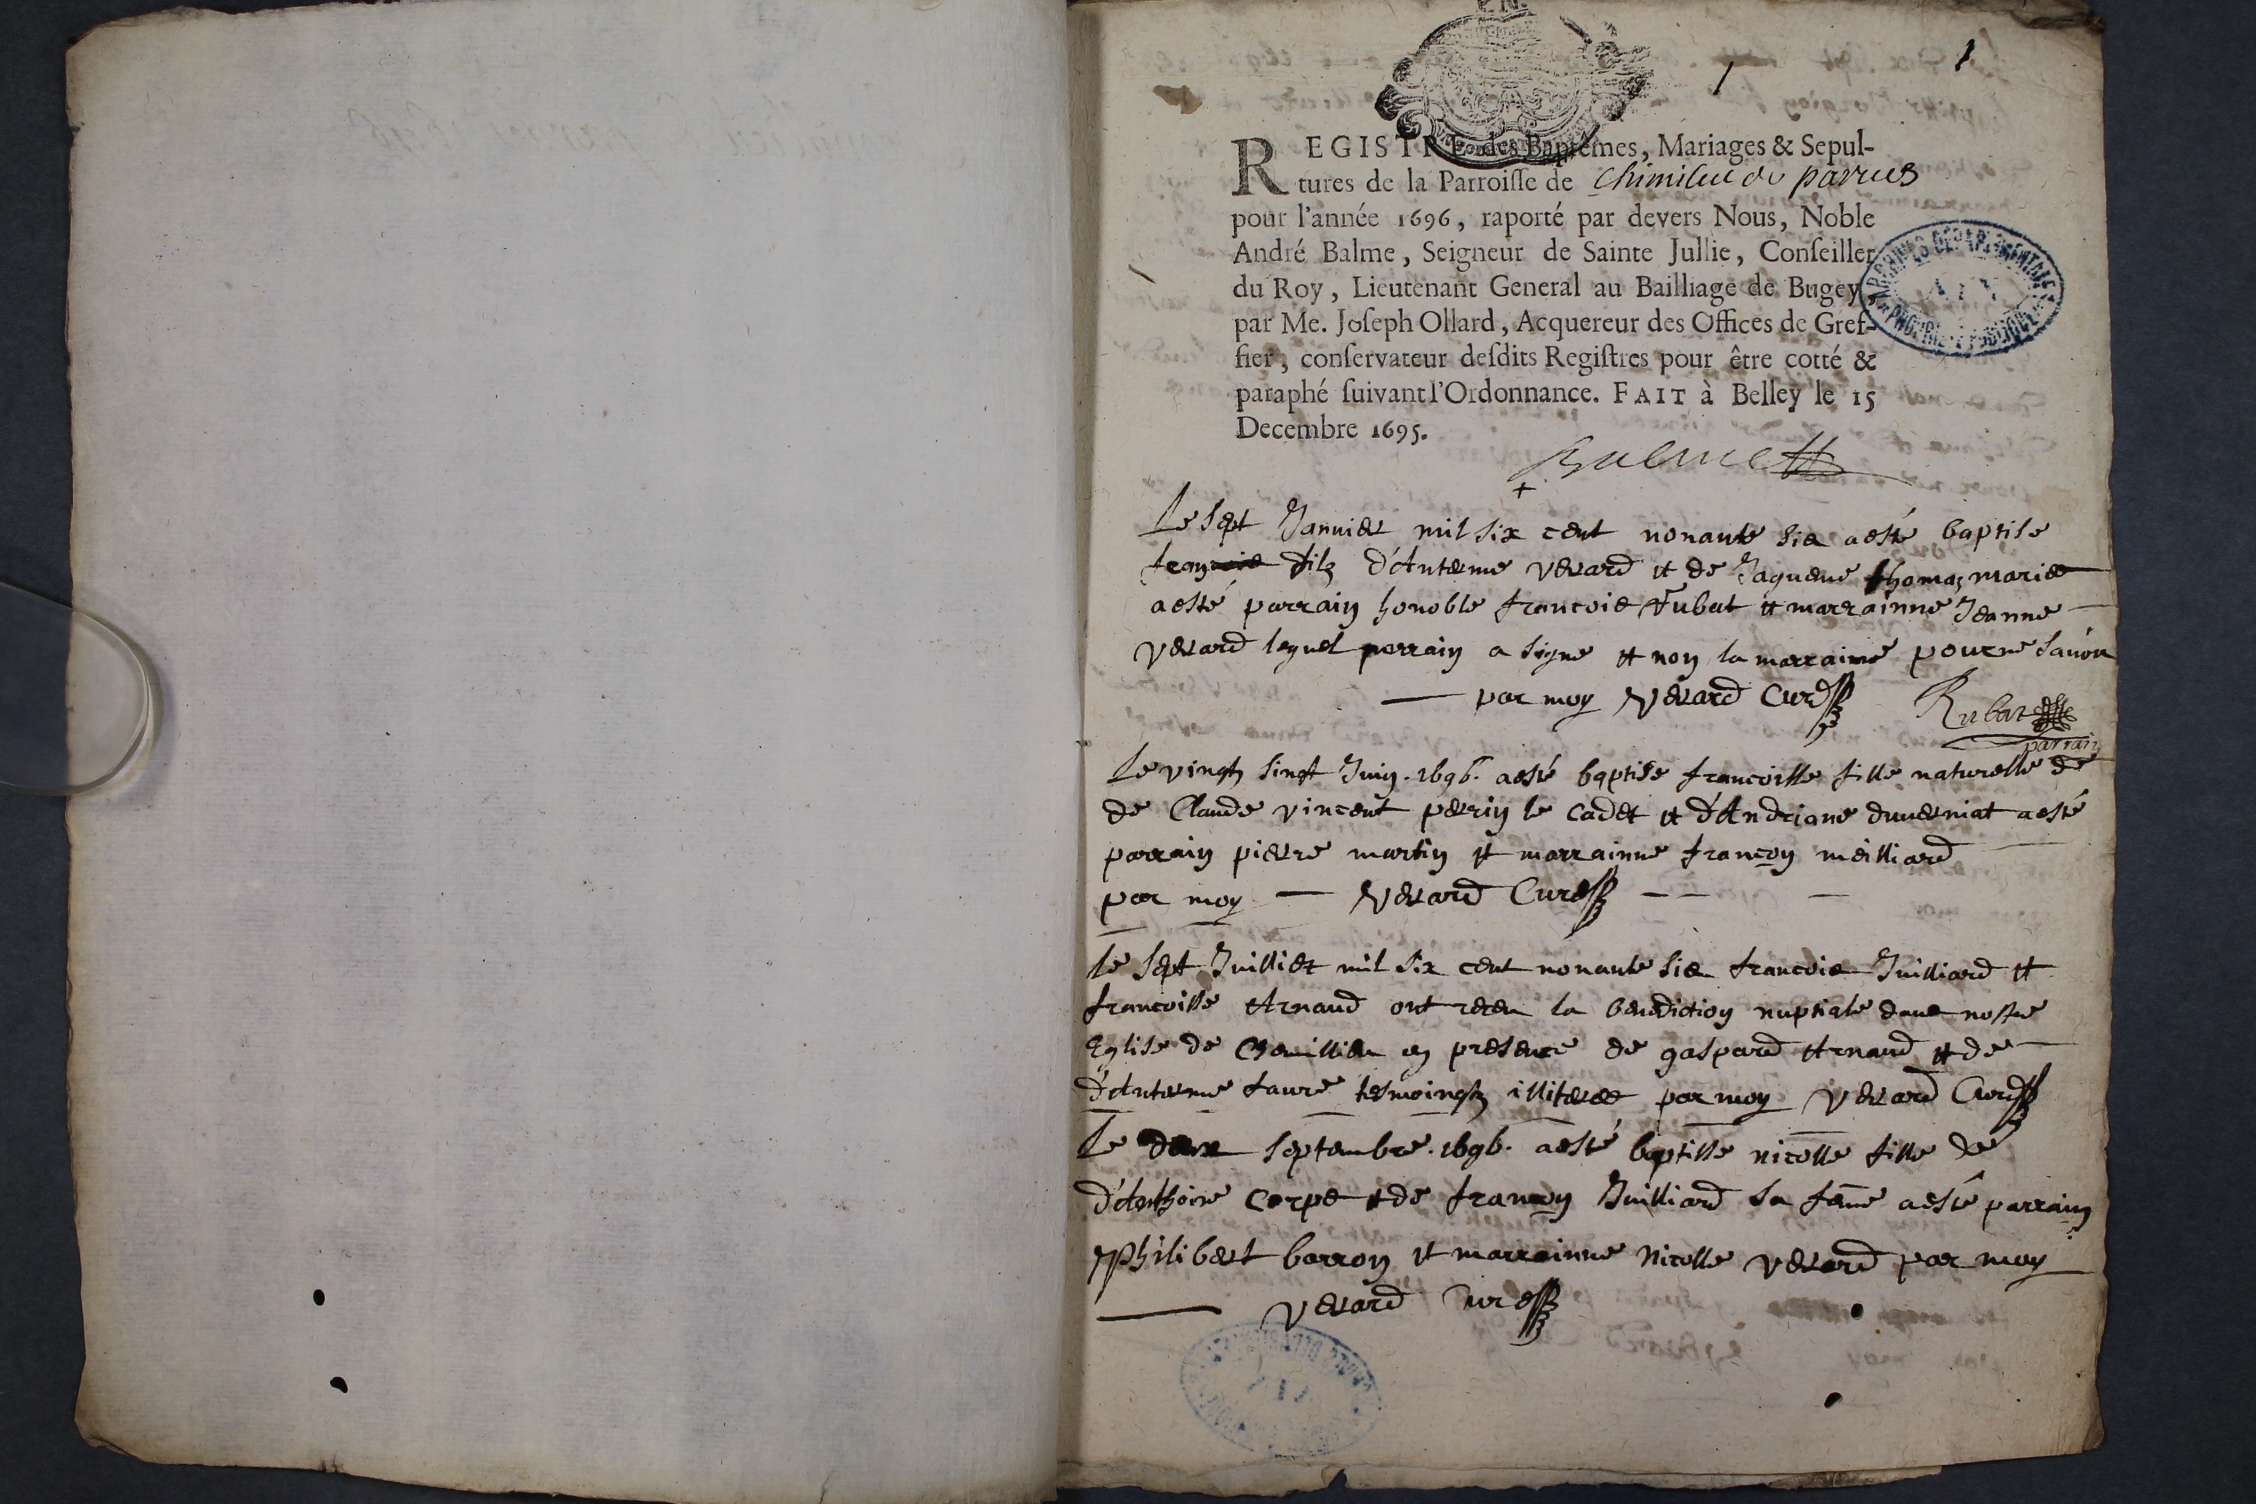 1 1
REGISTRE des Baptêmes, Mariages & Sepul-
tures de la Parroisse de Chimilieu de parves
pour l'année 1696, raporté par devers Nous, Noble
André Balme, Seigneur de Sainte Jullie, Conseiller
du Roy, Lieutenant General au Bailliage de Bugey,
par Me. Joseph Ollard, Acquereur des Offices de Gref-
fier, conservateur desdits Registres pour être cotté &
paraphé suivant l'Ordonnance. FAIT à Belley le 15
Decembre 1695.
Balme
ARCHIVES DEPARTEMENTALES AIN PROPRIETE PUBLIQUE
Le sept Januier mil six cent nonante six a esté baptise
francois filz d'Anterme verard et de Jaqueme thomaz maries
a esté parrain honoble francois Rubat et marrainne Jeanne
verard lequel parrain a signe et non la marraine pour ne sauoir
par moy verard Cure Rubat
parrain
Le vingtz singt Juin .1696. a esté baptise francoisse fille naturelle de
de Claude vincent perrin le cadet et d'Andriane duuerniat a esté
parrain pierre martin et marrainne francon meilliard
par moy verard Cure
le sept Juilliet mil six cent nonante six francois Juilliard et
francoisse Arnaud ont receu la benediction nuptiale dans nostre
Eglise de Chemillieu en presence de gaspard Arnaud et de
d'Anterme faure tesmoingtz illiteres par moy verard Cure
Le deux septembre .1696. a esté baptisse nicolle fille de
d'Anthoine Carpe et de francon Juilliard sa feme a esté parrain
Philibert barron et marrainne Nicolle verard par moy
verard Cure